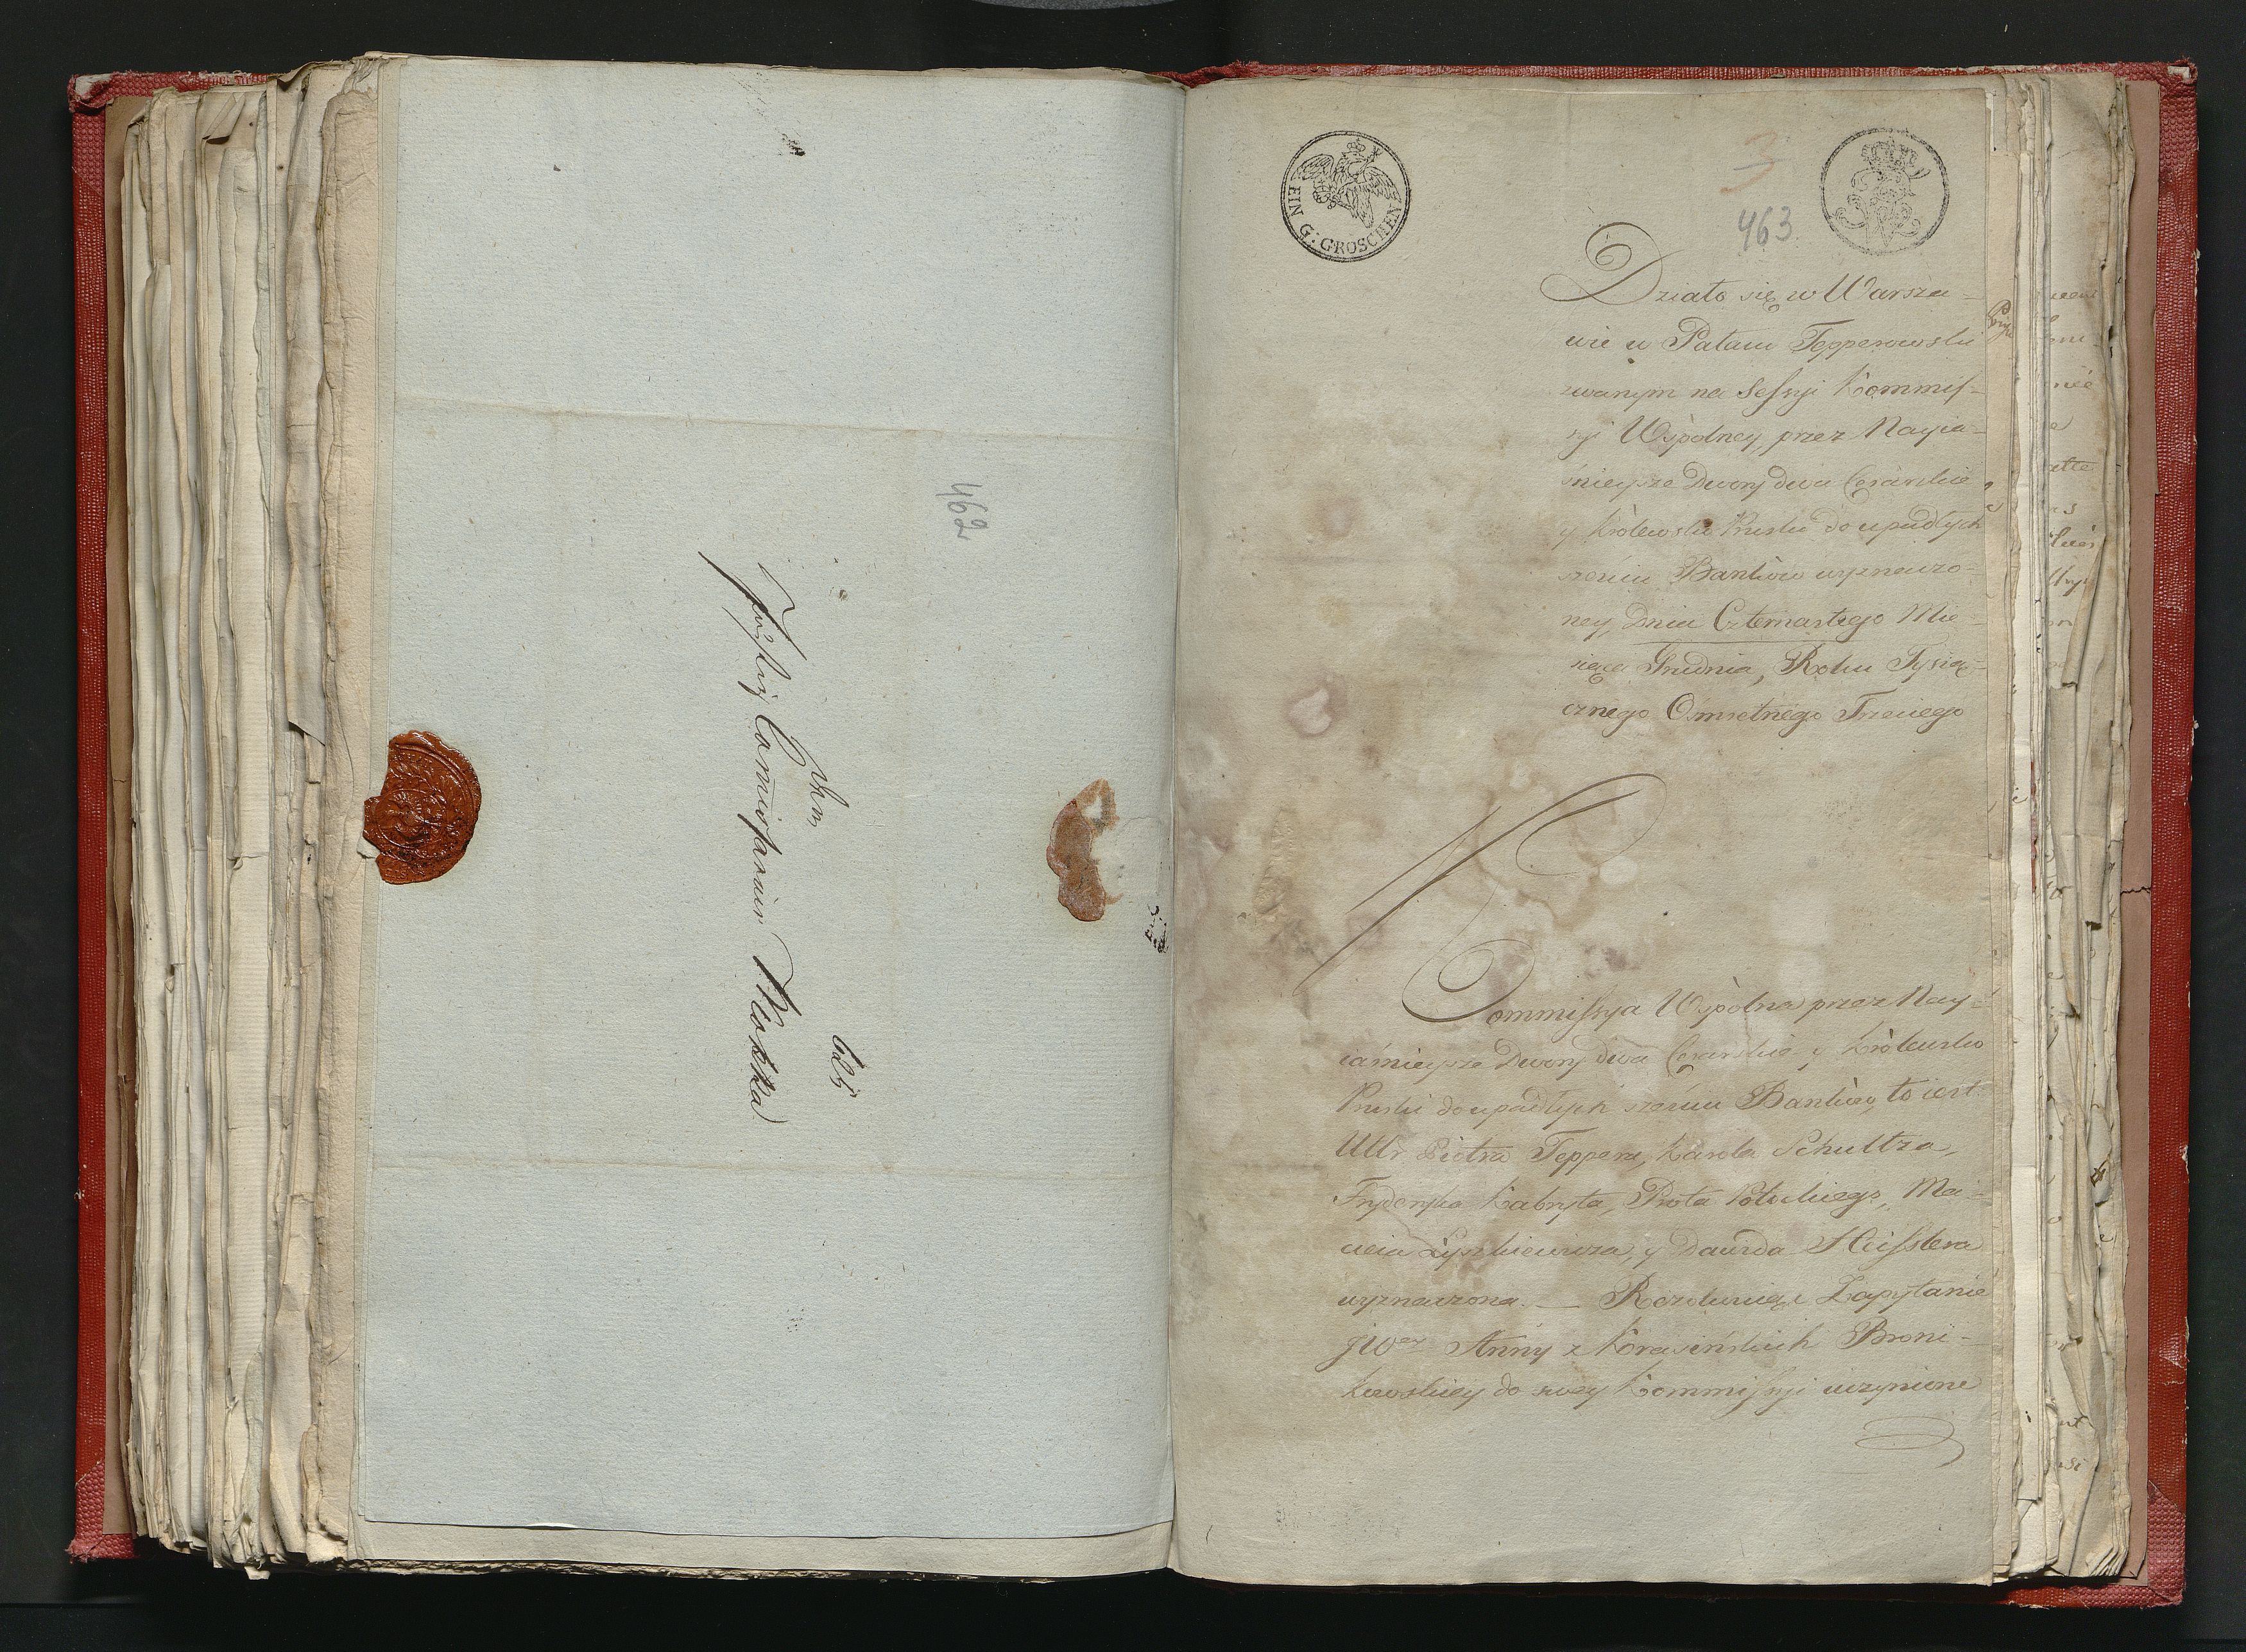 462
Justiz Commissarius Mokka
463
3
EIN G: GROSCHEN
Działo się w Warsza-
wie w Pałacu Tepperowski
zwanym na Sessyi Kommis-
syi Wspolney, przez Nayia-
śnieysze Dwory dwa Cesarskie
y Krolewsko Pruski do upadłych
sześciu Bankow wyznaczo-
ney, Dnia Czternastego Mie-
siąca Grudnia, Roku Tysią-
cznego Osmsetnego Trzeciego
Kommissya Wspolna przez Nay-
iaśnieysze Dwory dwa Cesarskie y Krolewsko
Pruski do upadłych sześciu Bankow, to iest
Piotra Teppera, Karola Schultza,
Fryderyka Kabryta, Prota Potockiego, Ma-
cieia Łyszkiewicza, y Dawida Heisslera
wyznaczona. — Rezolwuiąc Zapytanie
JWey Anny z Krasińskich Broni-
kowskiey do swey Kommissyi uczynione